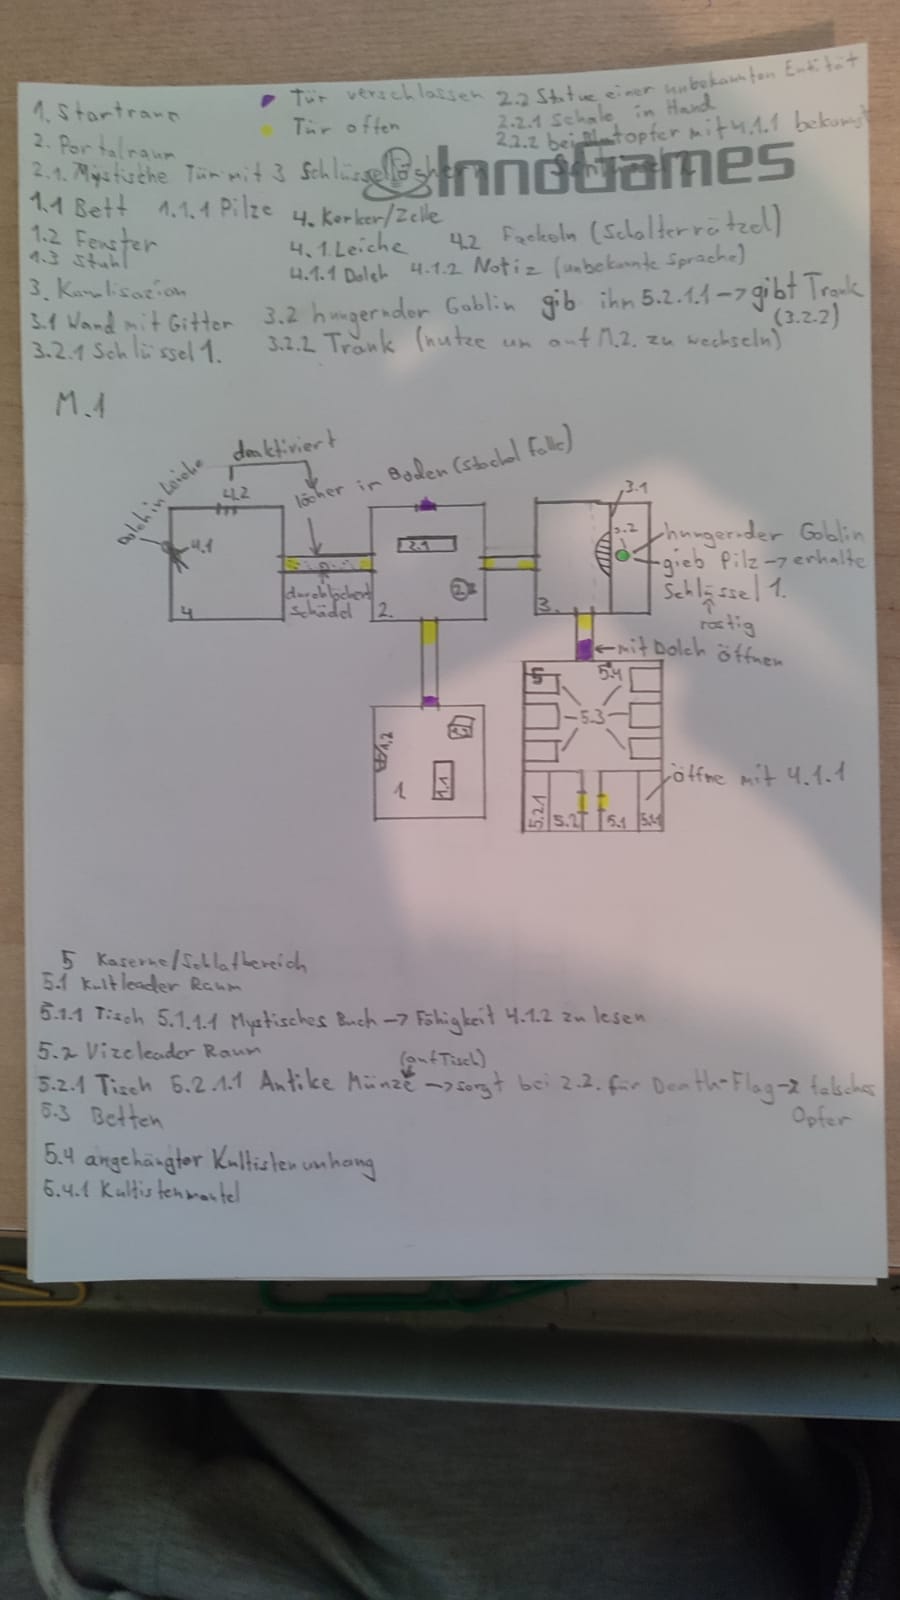 1. Startraum
2. Portalraum
2.1. Mystische Tür mit 3 Schlüssellöchern
1.1 Bett 1.1.1 Pilze
1.2 Fenster
1.3 Stuhl
3. Kanalisazion
3.1 Wand mit Gitter
3.2.1 Schlüssel 1.
Tür verschlassen
Tür offen
2.2 Statue einer unbekannten Entität
2.2.1 Schale in Hand
2.2.2 bei Blutopfer mit 4.1.1 bekomst
InnoGames
4. Kerker/Zelle
4.1. Leiche 4.2 Fackeln (Schalterrätzel)
4.1.1 Dolch 4.1.2 Notiz (unbekannte Sprache)
3.2 hungernder Goblin gib ihn 5.2.1.1 -> gibt Trank
(3.2.2)
3.2.2 Trank (nutze um auf M.2. zu wechseln)
M.1
deaktiviert
löcher im Boden (Stachel Falle)
Dolch in Leiche
4.2
4.1
4
durchlöchert
Schädel
2.1
2.
3.1
3.2
3.
hungernder Goblin
gieb Pilz -> erhalte
Schlüssel 1.
rostig
<- mit Dolch öffnen
1.2
1.1
1
5
5.4
5.3
öffne mit 4.1.1
5.2.1
5.2
5.1
5.1.1
5 Kaserne/Schlafbereich
5.1 Kultleader Raum
5.1.1 Tisch 5.1.1.1 Mystisches Buch -> Fähigkeit 4.1.2 zu lesen
5.2 Vizeleader Raum
(auf Tisch)
5.2.1 Tisch 5.2.1.1 Antike Münze -> sorgt bei 2.2. für Death-Flag -> falsches
Opfer
5.3 Betten
5.4 angehängter Kultistenumhang
5.4.1 Kultistenmantel